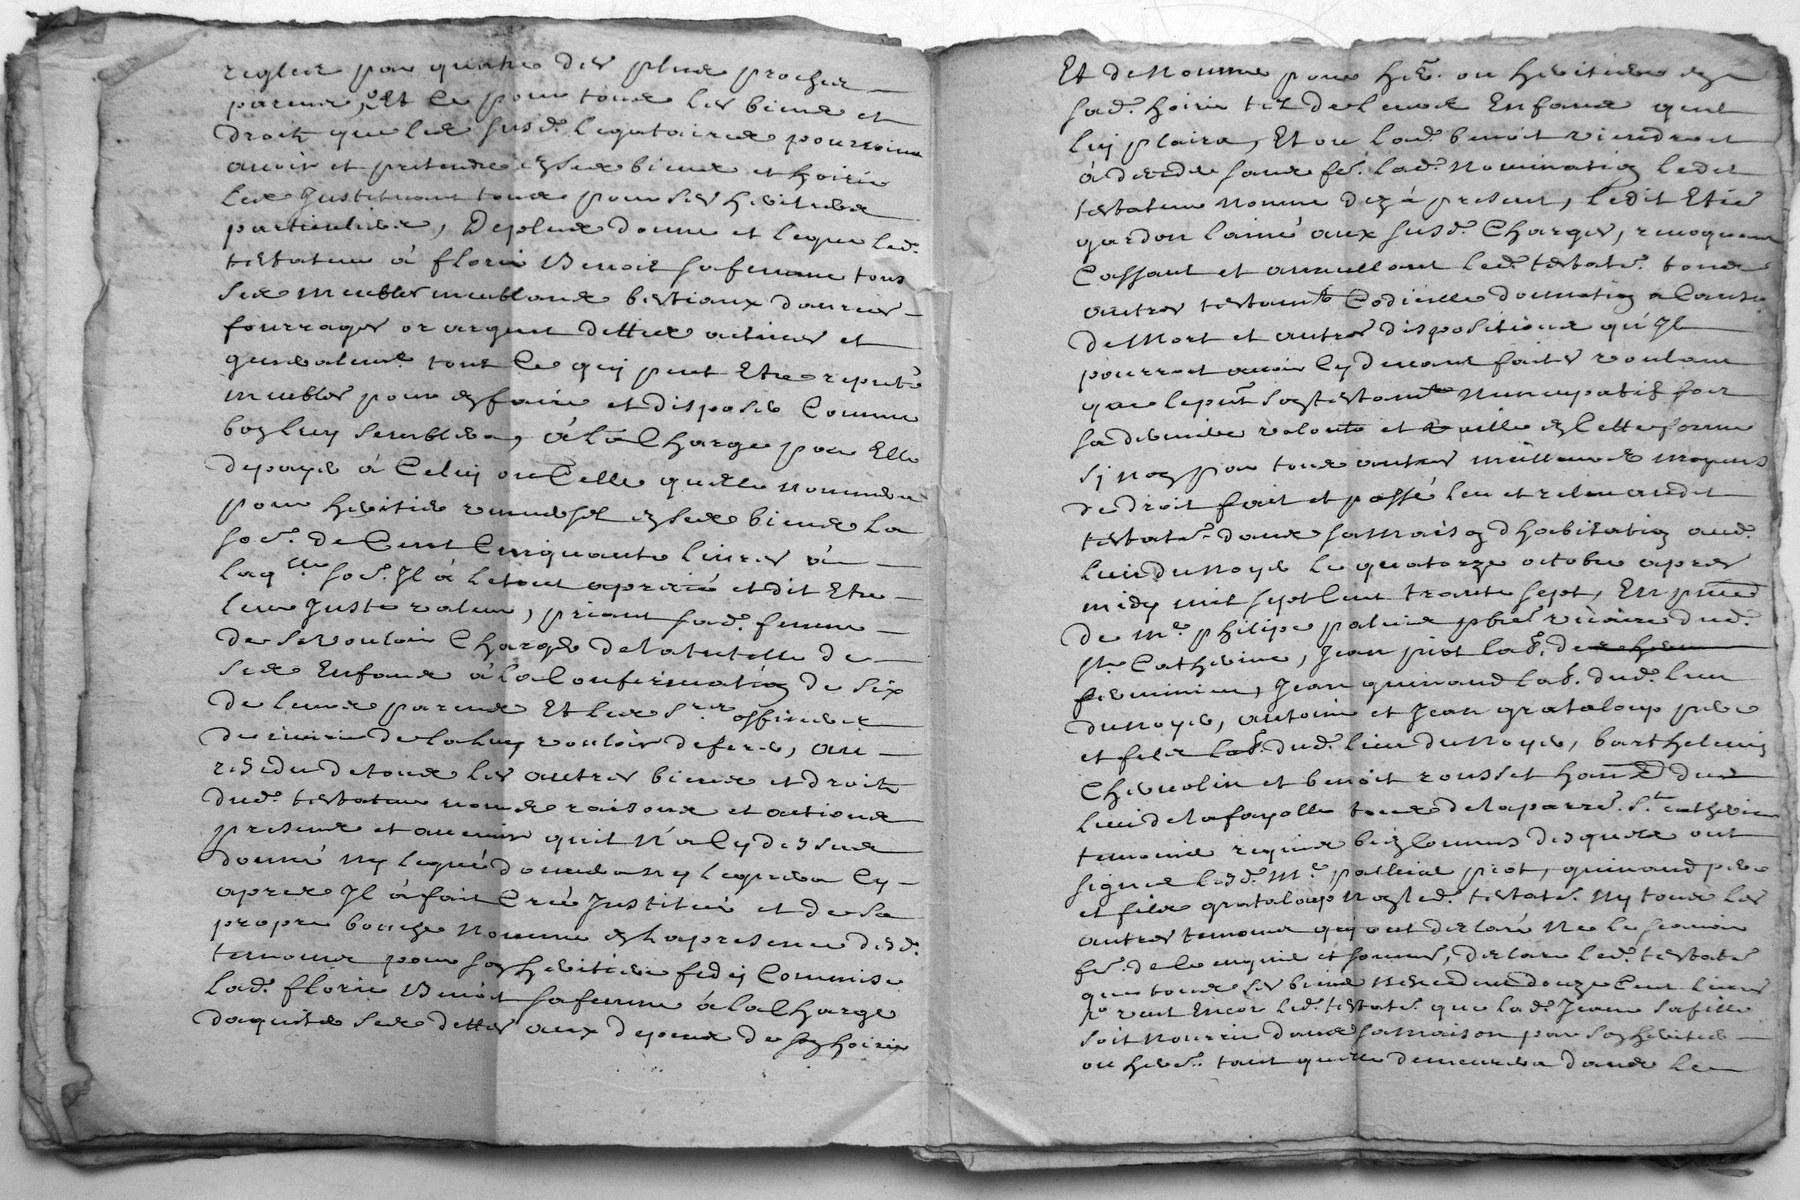 regler par quatre des plus proches
parens, Et ce pour tous les biens et
droits que les susd. legataires pourroint
avoir et pretendre en ses biens et hoirie
Les Instituant tous pour ses heritiers
particuliers, Deplus donne et legue led.
testateur à florie Benoit sa femme tous
ses meubles meublans bestiaux danrées
fourrages or argent dettes actives et
generalemt. tout ce qui peut Etre reputé
meubles pour en faire et disposer Comme
bon luy semblera, à la Charge par Elle
de payer à Celuy ou Celle quelle nommera
pour heritier universel en ses biens la
so.e de Cent Cinquante livres à
laq.lle so.e Il à le tout aprecié et dit Etre
leur Juste valeur, priant sad. femme
de se vouloir Charger de la tutelle de
ses Enfans à la Confirmation de six
de leurs parens Et les S.rs officiers
de luy vouloir deferer, au
residu de tous les autres biens et droits
dud. testateur noms raisons et actions
presens et avenir quil N'a Cy dessus
donné Ny legué donnera Ny leguera Cy
apres Il à fait Creé Institué et de sa
propre bouche Nomme en la presence desd.
temoins pour son heritiere fideij Commise
lad. florie Benoit sa femme à la Charge
daquiter ses dettes aux depens de son hoirie
Et de Nommer pour her. ou heritiere en
sad. hoirie tel de leurs Enfans quil
luy plaira, Et ou lad. benoit viendroit
à deceder sans fe. lad. Nomination ledit
testateur Nomme dez à present, ledit Etie
gardon lainé aux susd. Charges, revoquant
Cassant et annullant led. testat. tous
autres testam.ts Codicille donnation a Cause
de Mort et autres dispositions qu'Il
pourroit avoir Cy devant faites voulant
que le pnt son testamt. Nuncupatif soit
sa derniere volonté et vaille en Cette forme
Si non par tous autres meilleurs moyens
de droit fait et passé leu et releu audit
testat. dans sa maison d'habitation aud.
lieu du Noyé le quatorze octobre apres
midy mil sept Cent trante sept, En pnce
de M.e philipe pbre vicaire dud.
Ste. Catherine, Jean piot lab. de
Jean guinand lab. dud. lieu
du Noyé, antoine et Jean grataloup pere
et fils lab. dud. lieu du Noyé, barthelemy
et benoit rousset du
lieu de la fayolle tous de la parre. St. catherine
temoins requis bien Connus desquels ont
signé lesd. M.e piot, guinand pere
et fils grataloup Non led. testat. Ny tous les
autres temoins qui ont declaré Ne le scavoir
fe. de ce enquis et sommés, declare led. testate
que tous ses biens douze Cent livres
veut Encor led. testat. que lad. Jeane sa fille
soit Nourrie dans sa maison par son heritier
ou her.e tant quelle demeurera dans le